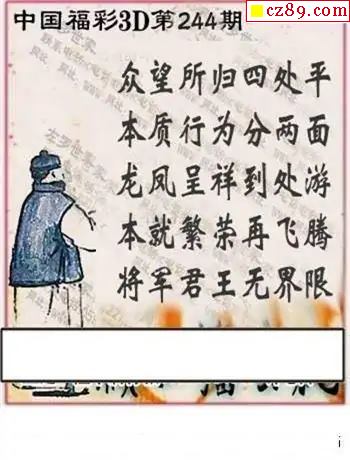 cz89.com
中国福彩3D第244期
众望所归四处平
本质行为分两面
龙凤呈祥到处游
本就繁荣再飞腾
将军君王无界限
i